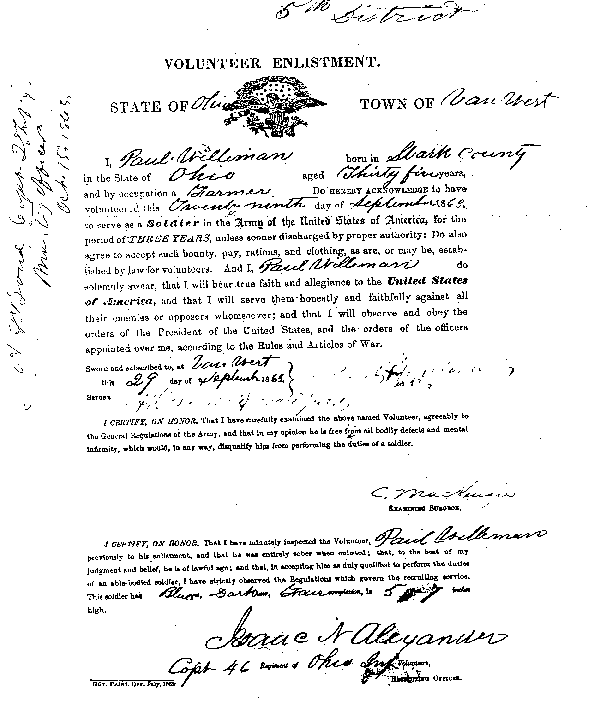 5th District
VOLUNTEER ENLISTMENT.
STATE OF Ohio TOWN OF Van Wert
I, Paul Willeman born in Stark County
in the State of Ohio aged Thirty five years,
and by occupation a Farmer Do HEREBY ACKNOWLEDGE to have
volunteered this Twenty ninth day of September 1863,
to serve as a Soldier in the Army of the United States of America, for the
period of THREE YEARS, unless sooner discharged by proper authority: Do also
agree to accept such bounty, pay, rations, and clothing, as are, or may be, estab-
lished by law for volunteers. And I, Paul Willeman do
solemnly swear, that I will bear true faith and allegiance to the United States
of America, and that I will serve them honestly and faithfully against all
their enemies or opposers whomsoever; and that I will observe and obey the
orders of the President of the United States, and the orders of the officers
appointed over me, according to the Rules and Articles of War.
Sworn and subscribed to, at Van Wert
this 29 day of September 1863
BEFORE
I CERTIFY, ON HONOR, That I have carefully examined the above named Volunteer, agreeably to
the General Regulations of the Army, and that in my opinion he is free from all bodily defects and mental
infirmity, which would, in any way, disqualify him from performing the duties of a soldier.
EXAMINING SURGEON.
I CERTIFY, ON HONOR, That I have minutely inspected the Volunteer, Paul Willeman
previously to his enlistment, and that he was entirely sober when enlisted; that, to the best of my
judgment and belief, he is of lawful age; and that, in accepting him as duly qualified to perform the duties
of an able-bodied soldier, I have strictly observed the Regulations which govern the recruiting service.
This soldier has
high.
Isaac N Alexander
Capt 46 Regiment of Ohio Inf Volunteers,
RECRUITING OFFICER.
Oct. 15th 1863